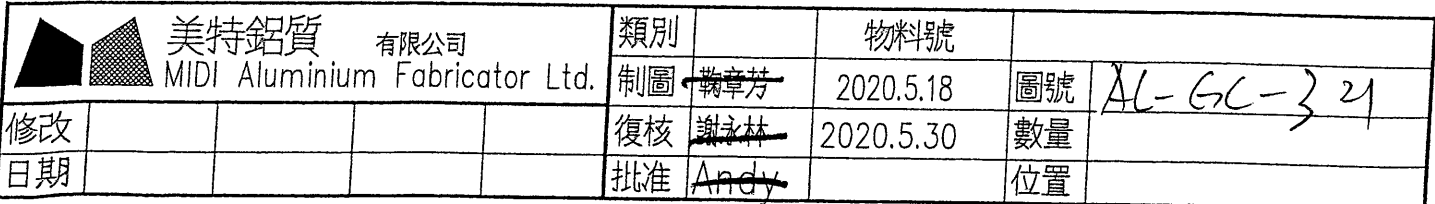 美特鋁質 有限公司
MIDI Aluminium Fabricator Ltd.
類別 物料號
制圖 鞠章芳 2020.5.18 圖號 AL-GC-321
修改 復核 謝永林 2020.5.30 數量
日期 批准 Andy 位置